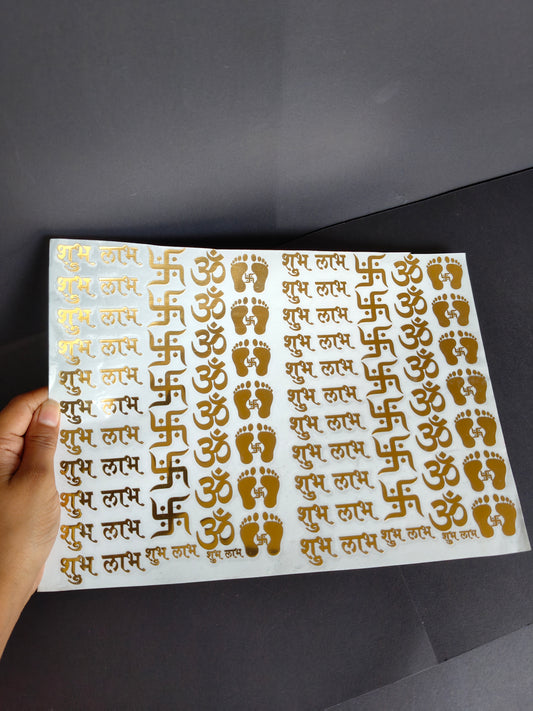 शुभ लाभ ॐ शुभ लाभ ॐ
शुभ लाभ ॐ शुभ लाभ ॐ
शुभ लाभ शुभ लाभ
शुभ लाभ ॐ शुभ लाभ ॐ
शुभ लाभ ॐ शुभ लाभ ॐ
शुभ लाभ ॐ शुभ लाभ ॐ
शुभ लाभ ॐ शुभ लाभ ॐ
शुभ लाभ शुभ लाभ
शुभ लाभ ॐ शुभ लाभ ॐ
शुभ लाभ ॐ शुभ लाभ ॐ
शुभ लाभ शुभ लाभ शुभ लाभ शुभ लाभ शुभ लाभ शुभ लाभ